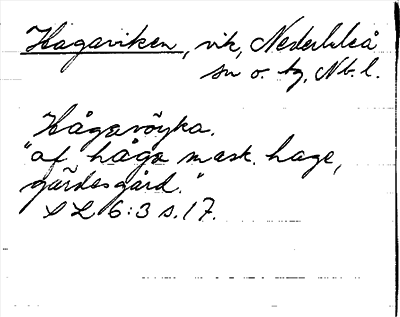 Hagaviken, vik, Nederluleå
sn o. tg, Nb. l.
Hågavöyka.
"af håga mask. hage,
gärdesgård."
SL 6:3 s. 17.